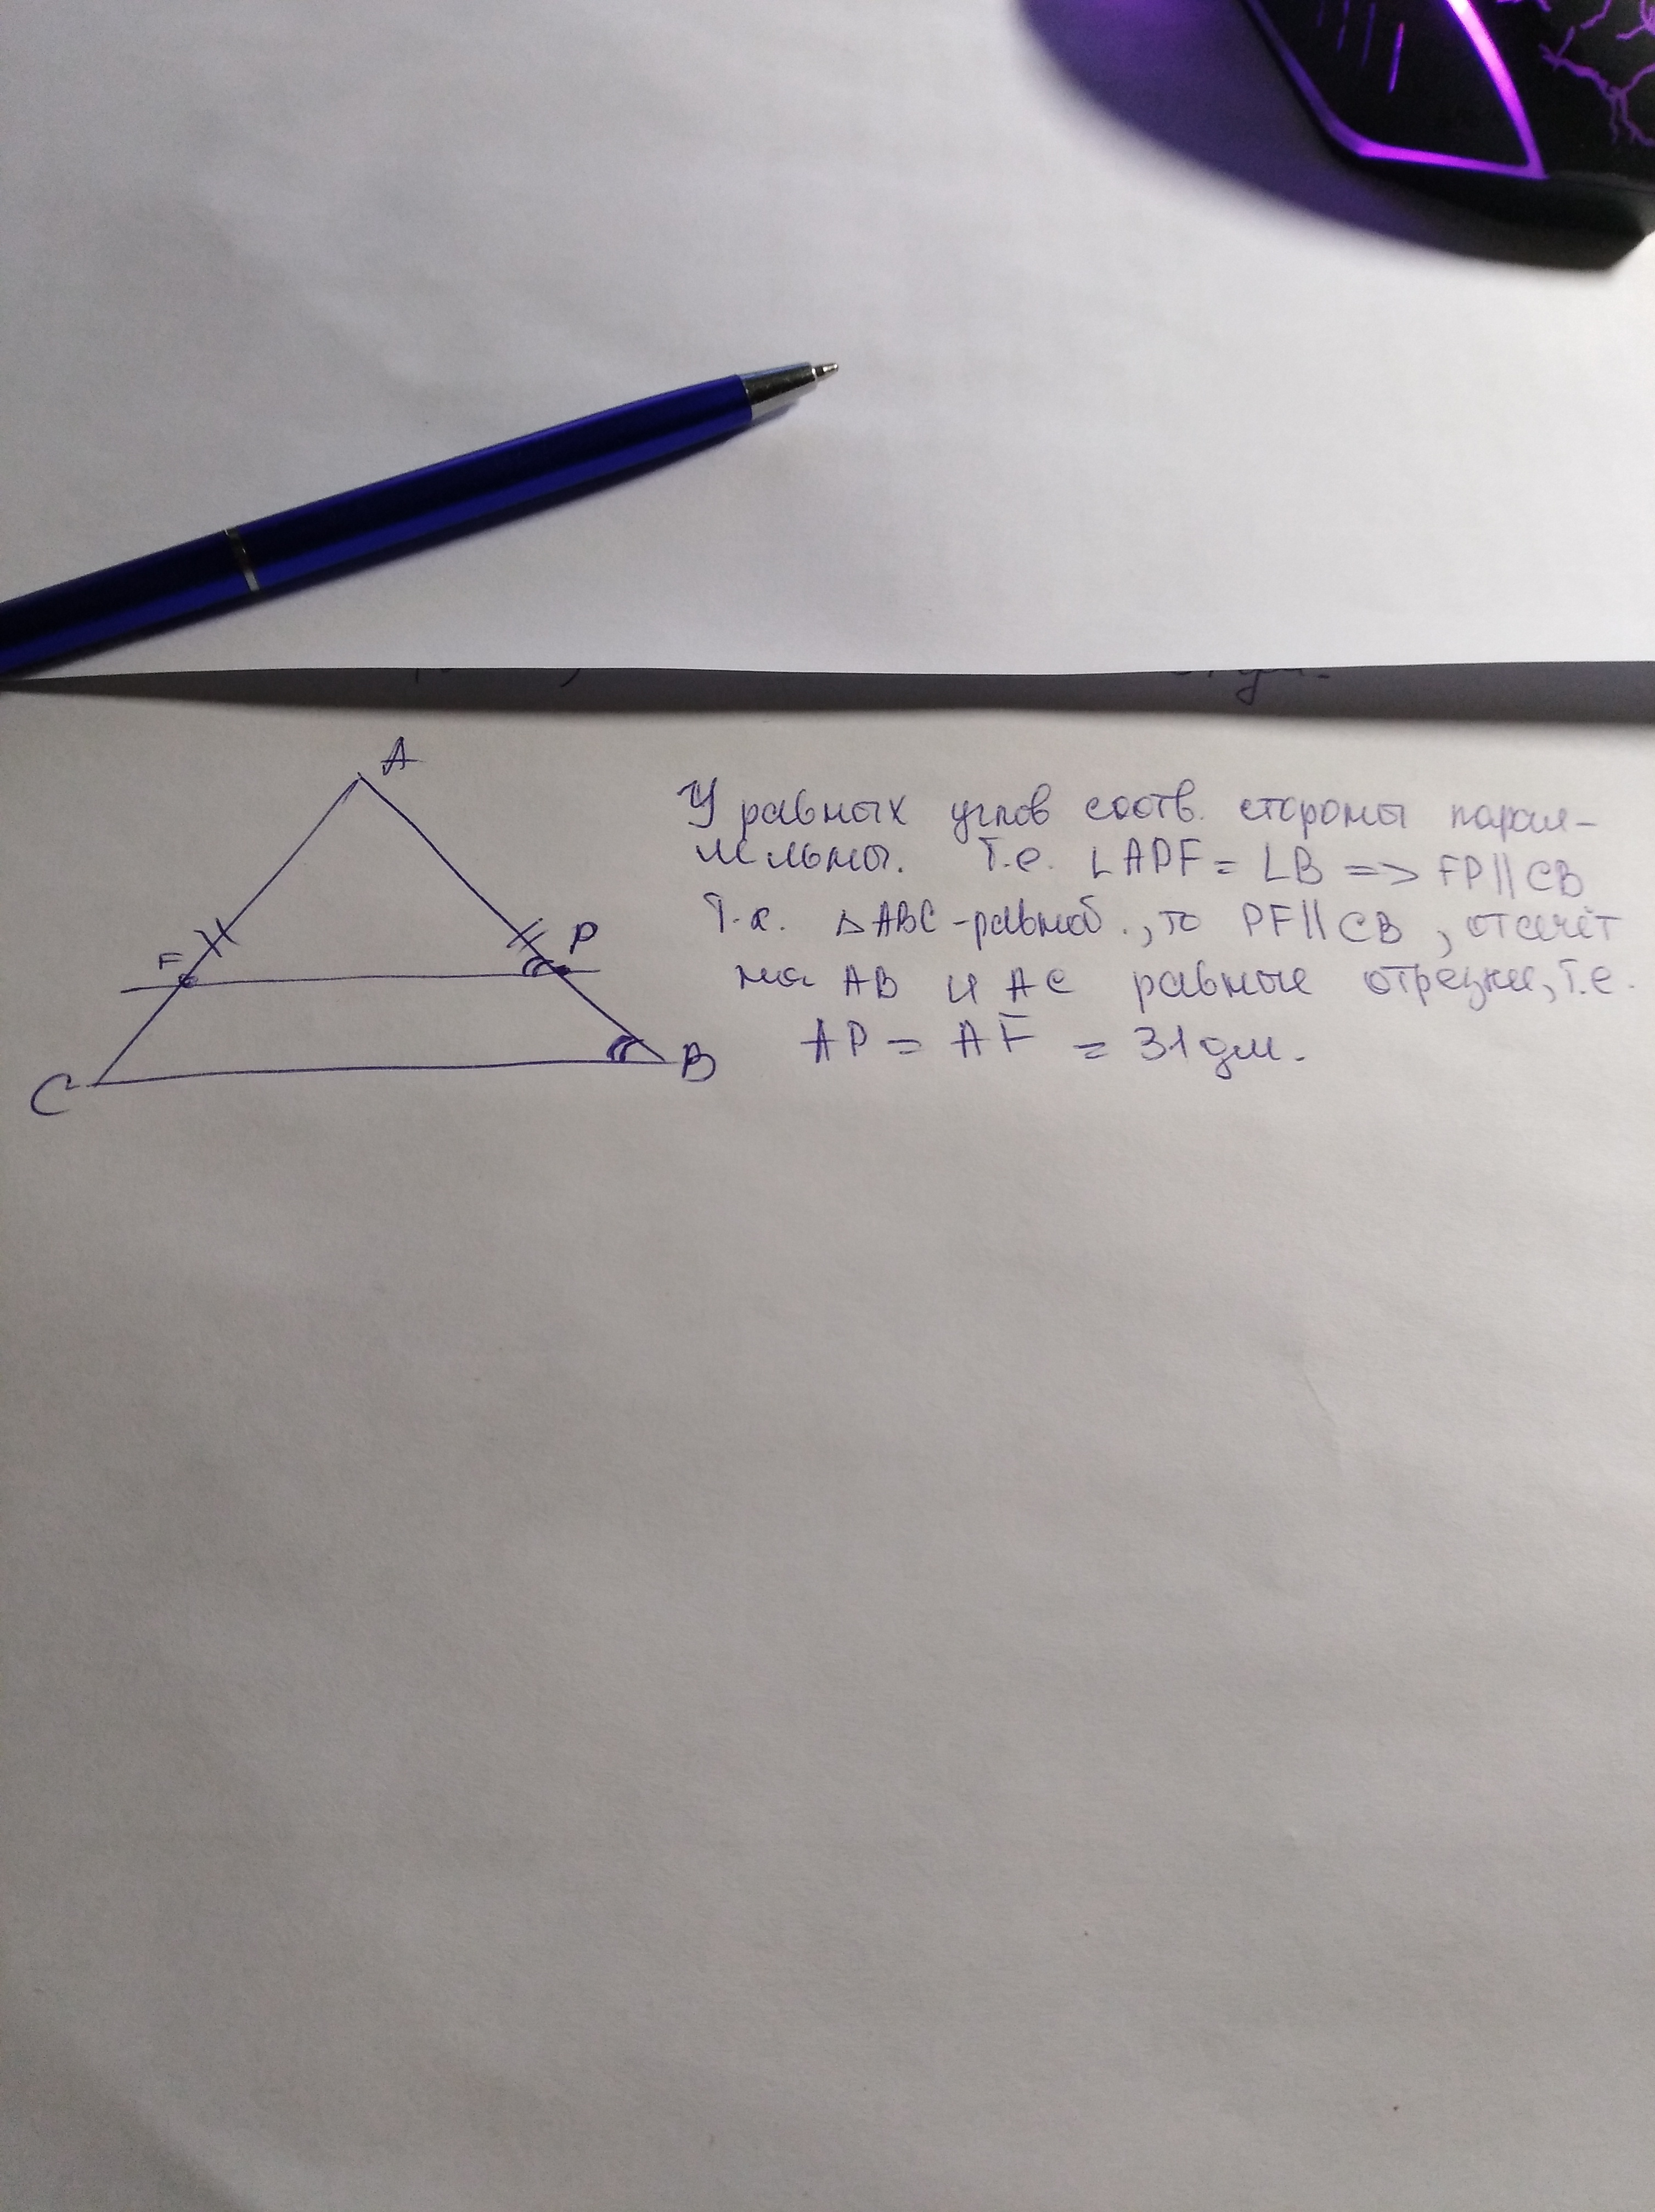 A
F
P
C
B
У равных углов соотв. стороны парал-
лельны. Т.е. ∠APF = ∠B => FP || CB
Т.к. △ABC - равноб., то PF || CB, отсечёт
на AB и AC равные отрезки, т.е.
AP = AF = 31 дм.